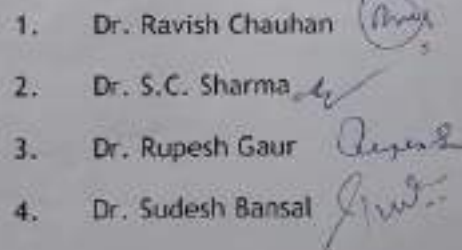 1. Dr. Ravish Chauhan
2. Dr. S.C. Sharma
3. Dr. Rupesh Gaur
4. Dr. Sudesh Bansal